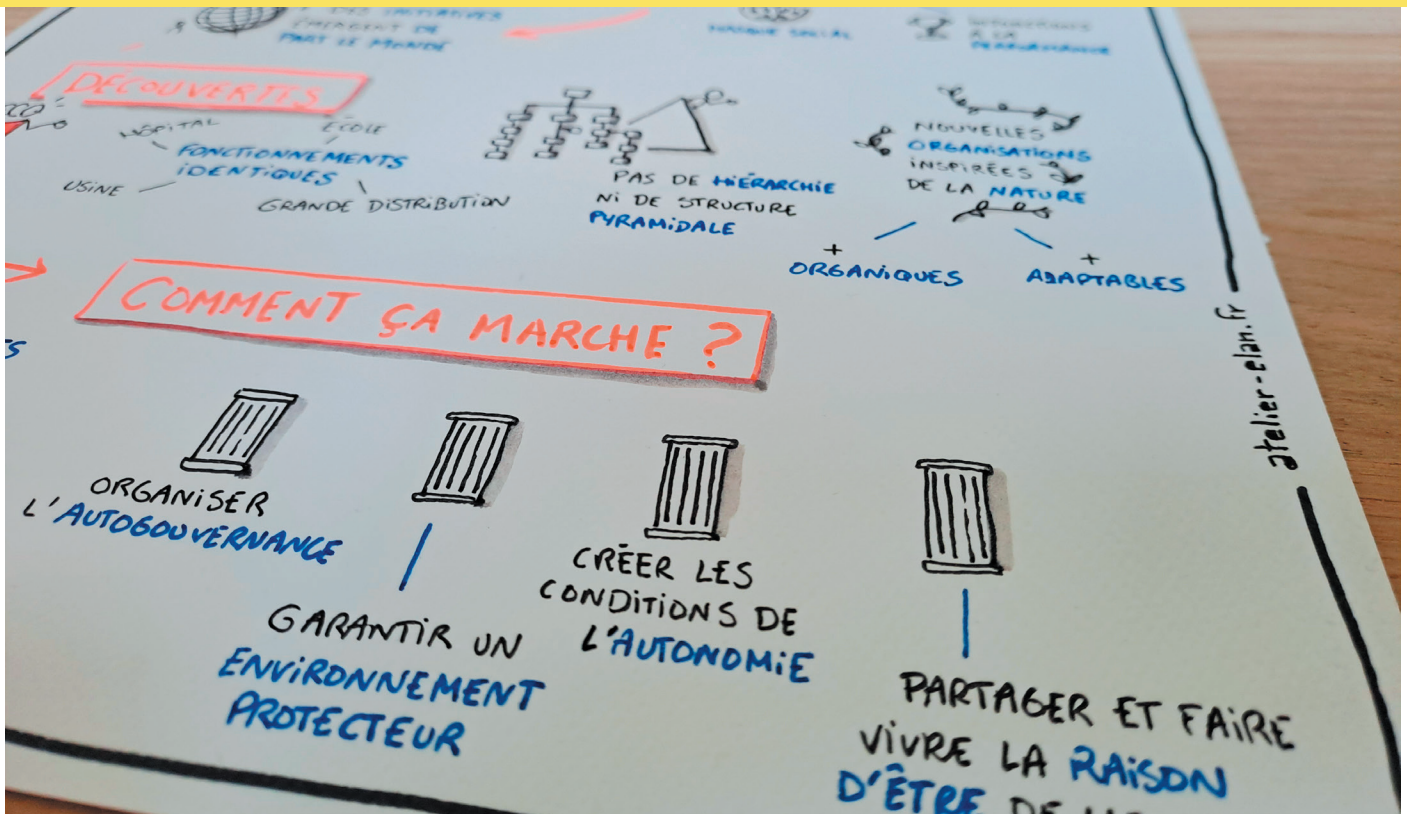 DES INITIATIVES
ÉMERGENT DE
PART LE MONDE
MASQUE SOCIAL
À LA
PERFORMANCE
DÉCOUVERTES
HÔPITAL
ÉCOLE
FONCTIONNEMENTS
IDENTIQUES
USINE
GRANDE DISTRIBUTION
PAS DE HIÉRARCHIE
NI DE STRUCTURE
PYRAMIDALE
NOUVELLES
ORGANISATIONS
INSPIRÉES
DE LA NATURE
+
ORGANIQUES
+
ADAPTABLES
COMMENT ÇA MARCHE ?
ORGANISER
L'AUTOGOUVERNANCE
GARANTIR UN
ENVIRONNEMENT
PROTECTEUR
CRÉER LES
CONDITIONS DE
L'AUTONOMIE
PARTAGER ET FAIRE
VIVRE LA RAISON
D'ÊTRE DE
atelier-elan.fr